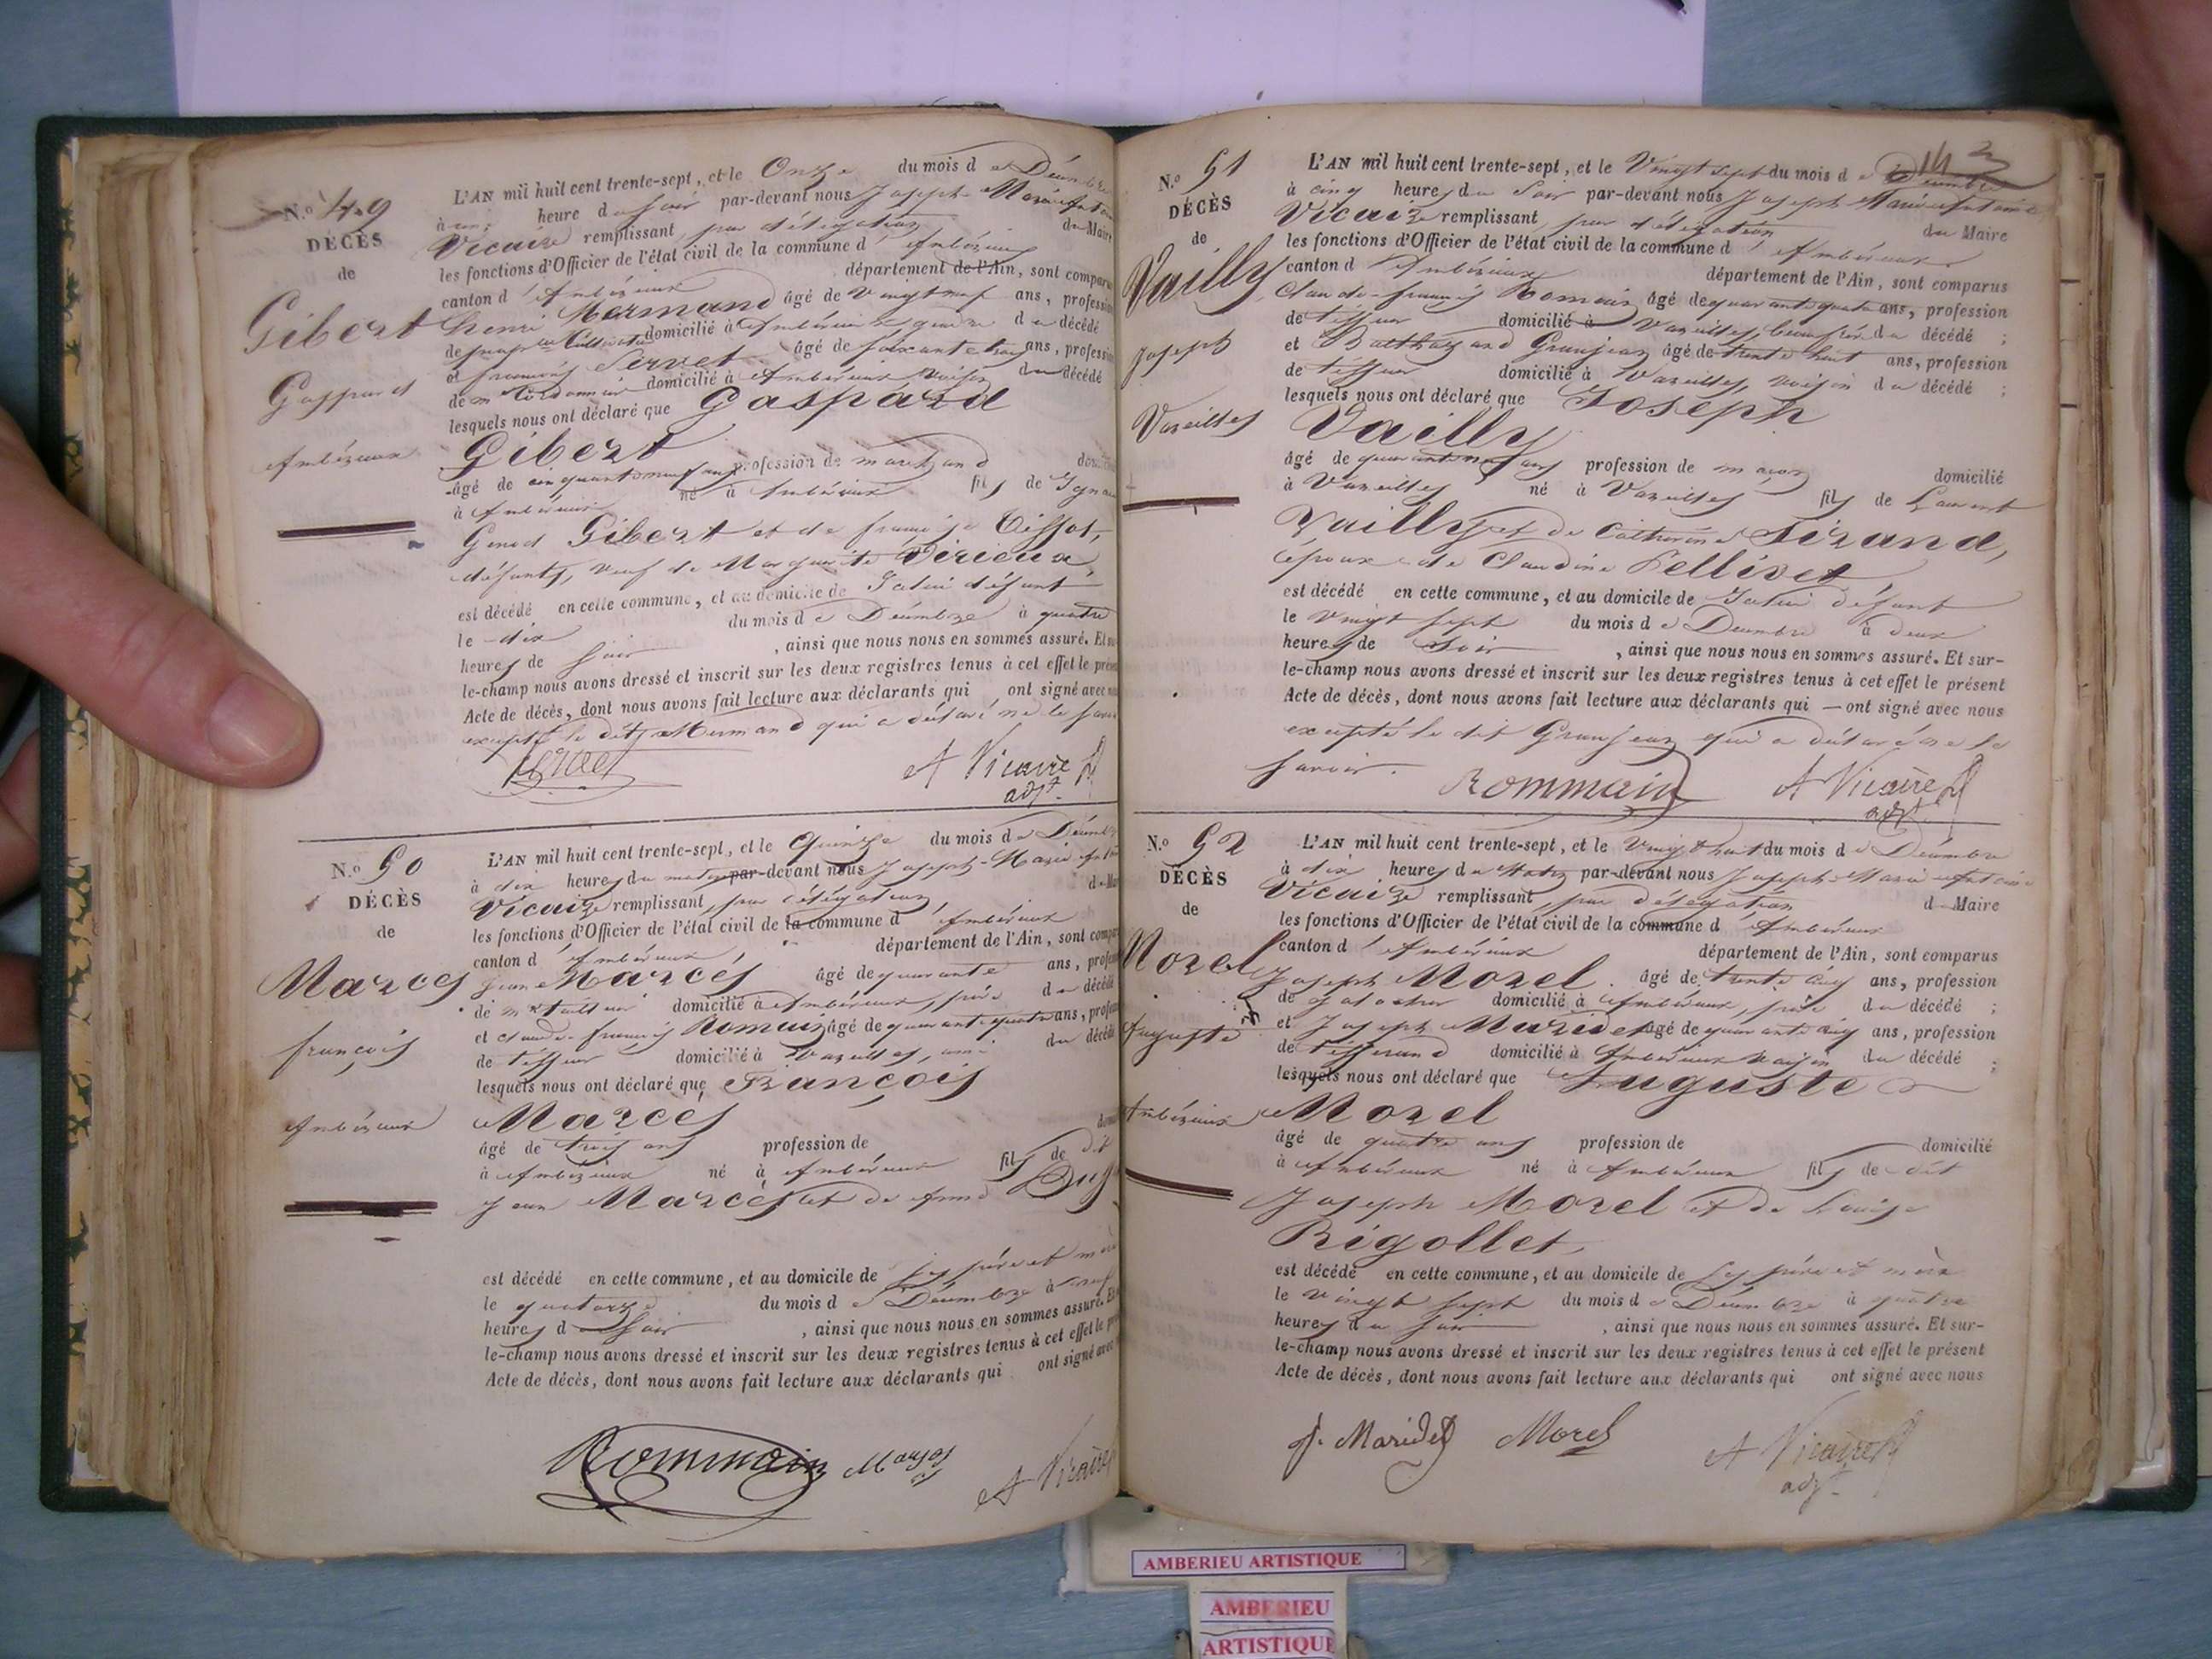 N.° 49
DÉCÈS
de
Gibert
Gaspard
Ambérieux
L'AN mil huit cent trente-sept, et le Onze du mois de Décembre
à une heure du soir par-devant nous Joseph-Marie Antoine
Vicaire remplissant par délégation du Maire
les fonctions d'Officier de l'état civil de la commune d'Ambérieux
canton d'Ambérieux département de l'Ain, sont comparus
henri Mermand âgé de vingt neuf ans, profession
de domicilié à Ambérieux du décédé
et françois Servet âgé de soixante ans, profession
de domicilié à Ambérieux voisin du décédé
lesquels nous ont déclaré que Gaspard
Gibert
âgé de cinquante neuf ans profession de marchand
à Ambérieux né à Ambérieux fils de
Gibert et de françoise Tissot,
défunts, veuf de Marguerite Virieux,
est décédé en cette commune, et au domicile de défunt
le dix du mois de Décembre à quatre
heures de soir, ainsi que nous nous en sommes assuré. Et sur-
le-champ nous avons dressé et inscrit sur les deux registres tenus à cet effet le présent
Acte de décès, dont nous avons fait lecture aux déclarants qui ont signé avec nous
excepté le dit Mermand qui a déclaré ne le savoir
Servet A Vicaire
adjt.
N.° 50
DÉCÈS
de
Marcés
françois
Ambérieux
L'AN mil huit cent trente-sept, et le Quinze du mois de Décembre
à dix heures du matin par-devant nous Joseph-Marie Antoine
Vicaire remplissant par délégation du Maire
les fonctions d'Officier de l'état civil de la commune d'Ambérieux
canton d'Ambérieux département de l'Ain, sont comparus
Jean Marcés âgé de quarante ans, profession
de domicilié à Ambérieux, père du décédé
et claude-françois Romain âgé de quarante quatre ans, profession
de tisseur domicilié à Vareilles, ami du décédé
lesquels nous ont déclaré que François
Marcés
âgé de trois ans profession de
à Ambérieux né à Ambérieux fils de dit
Jean Marcés et de Anne
est décédé en cette commune, et au domicile de ses père et mère
le quatorze du mois de Décembre à
heures d soir, ainsi que nous nous en sommes assuré. Et
le-champ nous avons dressé et inscrit sur les deux registres tenus à cet effet le
Acte de décès, dont nous avons fait lecture aux déclarants qui ont signé avec
Rommain A Vicaire
N.° 51
DÉCÈS
de
Vailly
Joseph
Vareilles
L'AN mil huit cent trente-sept, et le Vingt sept du mois de Décembre
à cinq heures du Soir par-devant nous Joseph Marie Antoine
Vicaire remplissant par délégation du Maire
les fonctions d'Officier de l'état civil de la commune d'Ambérieux
canton d'Ambérieux département de l'Ain, sont comparus
Claude-françois Romain âgé de quarante quatre ans, profession
de tisseur domicilié à Vareilles, beau frère du décédé ;
et Balthazard Granjean âgé de trente huit ans, profession
de tisseur domicilié à Vareilles, voisin du décédé ;
lesquels nous ont déclaré que Joseph
Vailly
âgé de quarante neuf ans profession de maçon domicilié
à Vareilles né à Vareilles fils de Laurent
Vailly et de Catherine Sirand,
époux de Claudine Pellivet
est décédé en cette commune, et au domicile de défunt
le vingt sept du mois de Décembre à deux
heures de soir, ainsi que nous nous en sommes assuré. Et sur-
le-champ nous avons dressé et inscrit sur les deux registres tenus à cet effet le présent
Acte de décès, dont nous avons fait lecture aux déclarants qui — ont signé avec nous
excepté le dit Granjean qui a déclaré ne le
savoir.
Rommain A Vicaire
adjt.
N.° 52
DÉCÈS
de
Morel
Auguste
Ambérieux
L'AN mil huit cent trente-sept, et le Vingt huit du mois de Décembre
à dix heures du Matin par-devant nous Joseph-Marie Antoine
Vicaire remplissant par délégation d Maire
les fonctions d'Officier de l'état civil de la commune d'Ambérieux
canton d'Ambérieux département de l'Ain, sont comparus
Joseph Morel âgé de trente cinq ans, profession
de galochier domicilié à Ambérieux, père du décédé ;
et Joseph Maridet âgé de quarante cinq ans, profession
de tisserand domicilié à Ambérieux voisin du décédé ;
lesquels nous ont déclaré que Auguste
Morel
âgé de quatre ans profession de domicilié
à Ambérieux né à Ambérieux fils de dit
Joseph Morel et de Louise
Rigollet,
est décédé en cette commune, et au domicile de ses père et mère
le vingt sept du mois de Décembre à quatre
heures du soir, ainsi que nous nous en sommes assuré. Et sur-
le-champ nous avons dressé et inscrit sur les deux registres tenus à cet effet le présent
Acte de décès, dont nous avons fait lecture aux déclarants qui ont signé avec nous
J. Maridet Morel A Vicaire
adjt.
AMBERIEU ARTISTIQUE
AMBERIEU
ARTISTIQUE